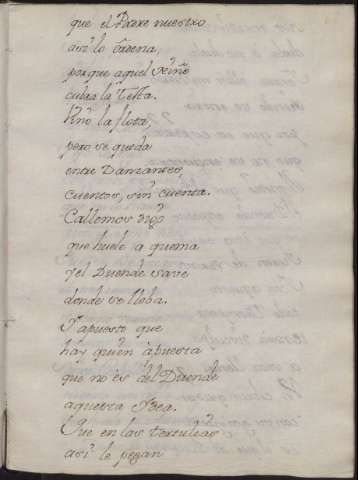 que el Padre nuestro
asi lo ordena,
porque aquel Reino
cubra la Testa.
Vino la flota,
pero se queda
entre Damantes,
cuentos, sin cuenta.
Callemos digo
que huele a quema
y el Duende save
donde se lleba.
Y apuesto que
hay quien àpuesta
que no es del Duende
aquesta Idea.
Que en las tertulias
asi le pegan